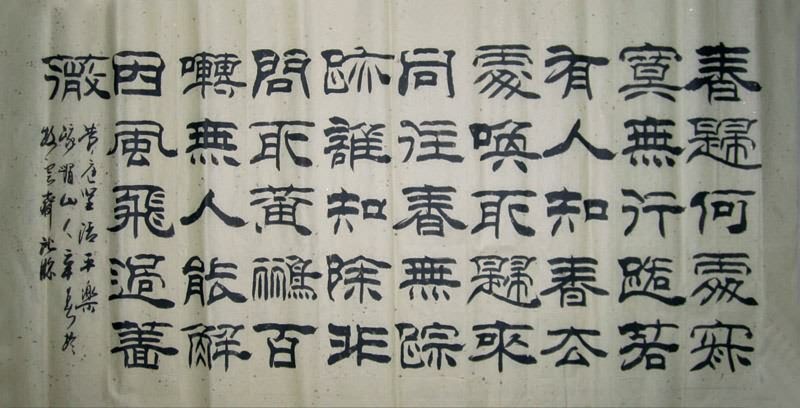 春歸何處寂
寞無行路若
有人知春去
處喚取歸來
同住春無踪
跡誰知除非
問取黃鸝百
囀無人能解
因風飛過薔
薇
黃庭堅清平樂
峨眉山人